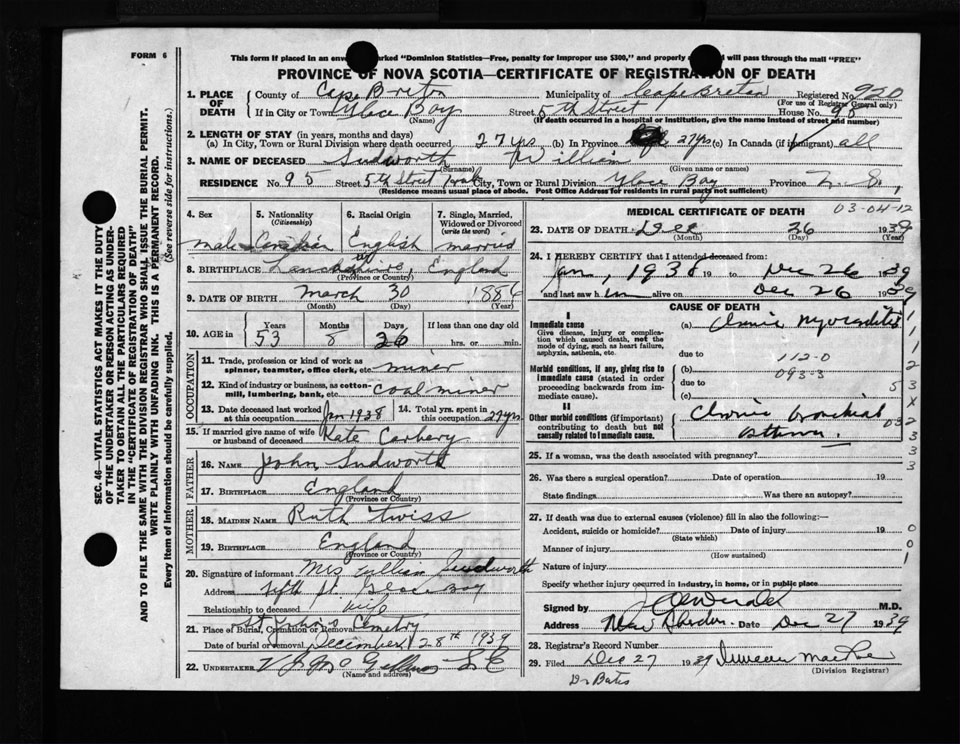 FORM 6
This form if placed in an marked "Dominion Statistics—Free, penalty for improper use $300," and properly will pass through the mail "FREE"
PROVINCE OF NOVA SCOTIA—CERTIFICATE OF REGISTRATION OF DEATH
1. PLACE OF DEATH County of Cape Breton Municipality of Cape Breton Registered No. 920
(For use of Registrar General only)
If in City or Town Glace Bay Street 5th Street House No. 95
(If death occurred in a hospital or institution, give the name instead of street and number)
2. LENGTH OF STAY (in years, months and days)
(a) In City, Town or Rural Division where death occurred 27 yrs (b) In Province 27 yrs (c) In Canada (if immigrant) all
3. NAME OF DECEASED Sudworth William
(Surname) (Given name or names)
RESIDENCE No. 95 Street 5th Street City, Town or Rural Division Glace Bay Province N.S.
(Residence means usual place of abode. Post Office Address for residents in rural parts not sufficient)
4. Sex 5. Nationality (Citizenship) 6. Racial Origin 7. Single, Married, Widowed or Divorced (write the word)
male Canadian English married
8. BIRTHPLACE Lancashire, England
(Province or Country)
9. DATE OF BIRTH March 30 1886
(Month) (Day) (Year)
10. AGE in Years Months Days If less than one day old
53 8 26 hrs. or min.
OCCUPATION
11. Trade, profession or kind of work as spinner, teamster, office clerk, etc. miner
12. Kind of industry or business, as cotton-mill, lumbering, bank, etc. coal miner
13. Date deceased last worked at this occupation Jan 1938 14. Total yrs. spent in this occupation 27 yrs
15. If married give name of wife or husband of deceased Kate Carbery
FATHER
16. NAME John Sudworth
17. BIRTHPLACE England
(Province or Country)
MOTHER
18. MAIDEN NAME Ruth Twiss
19. BIRTHPLACE England
(Province or Country)
20. Signature of informant Mrs William Sudworth
Address Fifth St. Glace Bay
Relationship to deceased wife
21. Place of Burial, Cremation or Removal St John's Cemetry
Date of burial or removal December 28th 1939
22. UNDERTAKER
(Name and address)
MEDICAL CERTIFICATE OF DEATH
03-04-12
23. DATE OF DEATH Dec 26 1939
(Month) (Day) (Year)
24. I HEREBY CERTIFY that I attended deceased from:
Jan, 1938 19 to Dec 26 1939
and last saw him alive on Dec 26 1939
CAUSE OF DEATH
I
Immediate cause
Give disease, injury or complication which caused death, not the mode of dying, such as heart failure, asphyxia, asthenia, etc.
(a) Chronic myocarditis
due to
112-0
Morbid conditions, if any, giving rise to immediate cause (stated in order proceeding backwards from immediate cause).
(b)
093-3
due to
(c)
II
Other morbid conditions (if important) contributing to death but not causally related to immediate cause.
Chronic bronchial
asthma.
25. If a woman, was the death associated with pregnancy?
26. Was there a surgical operation? Date of operation 19
State findings Was there an autopsy?
27. If death was due to external causes (violence) fill in also the following:—
Accident, suicide or homicide? Date of injury 19
(State which)
Manner of injury
(How sustained)
Nature of injury
Specify whether injury occurred in industry, in home, or in public place
Signed by M.D.
Address New Aberdeen Date Dec 27 1939
28. Registrar's Record Number
29. Filed Dec 27 1939
(Division Registrar)
Dr Bates
SEC. 46—VITAL STATISTICS ACT MAKES IT THE DUTY
OF THE UNDERTAKER OR PERSON ACTING AS UNDER-
TAKER TO OBTAIN ALL THE PARTICULARS REQUIRED
IN THE "CERTIFICATE OF REGISTRATION OF DEATH"
AND TO FILE THE SAME WITH THE DIVISION REGISTRAR WHO SHALL ISSUE THE BURIAL PERMIT.
WRITE PLAINLY WITH UNFADING INK. THIS IS A PERMANENT RECORD.
Every item of information should be carefully supplied. (See reverse side for instructions.)